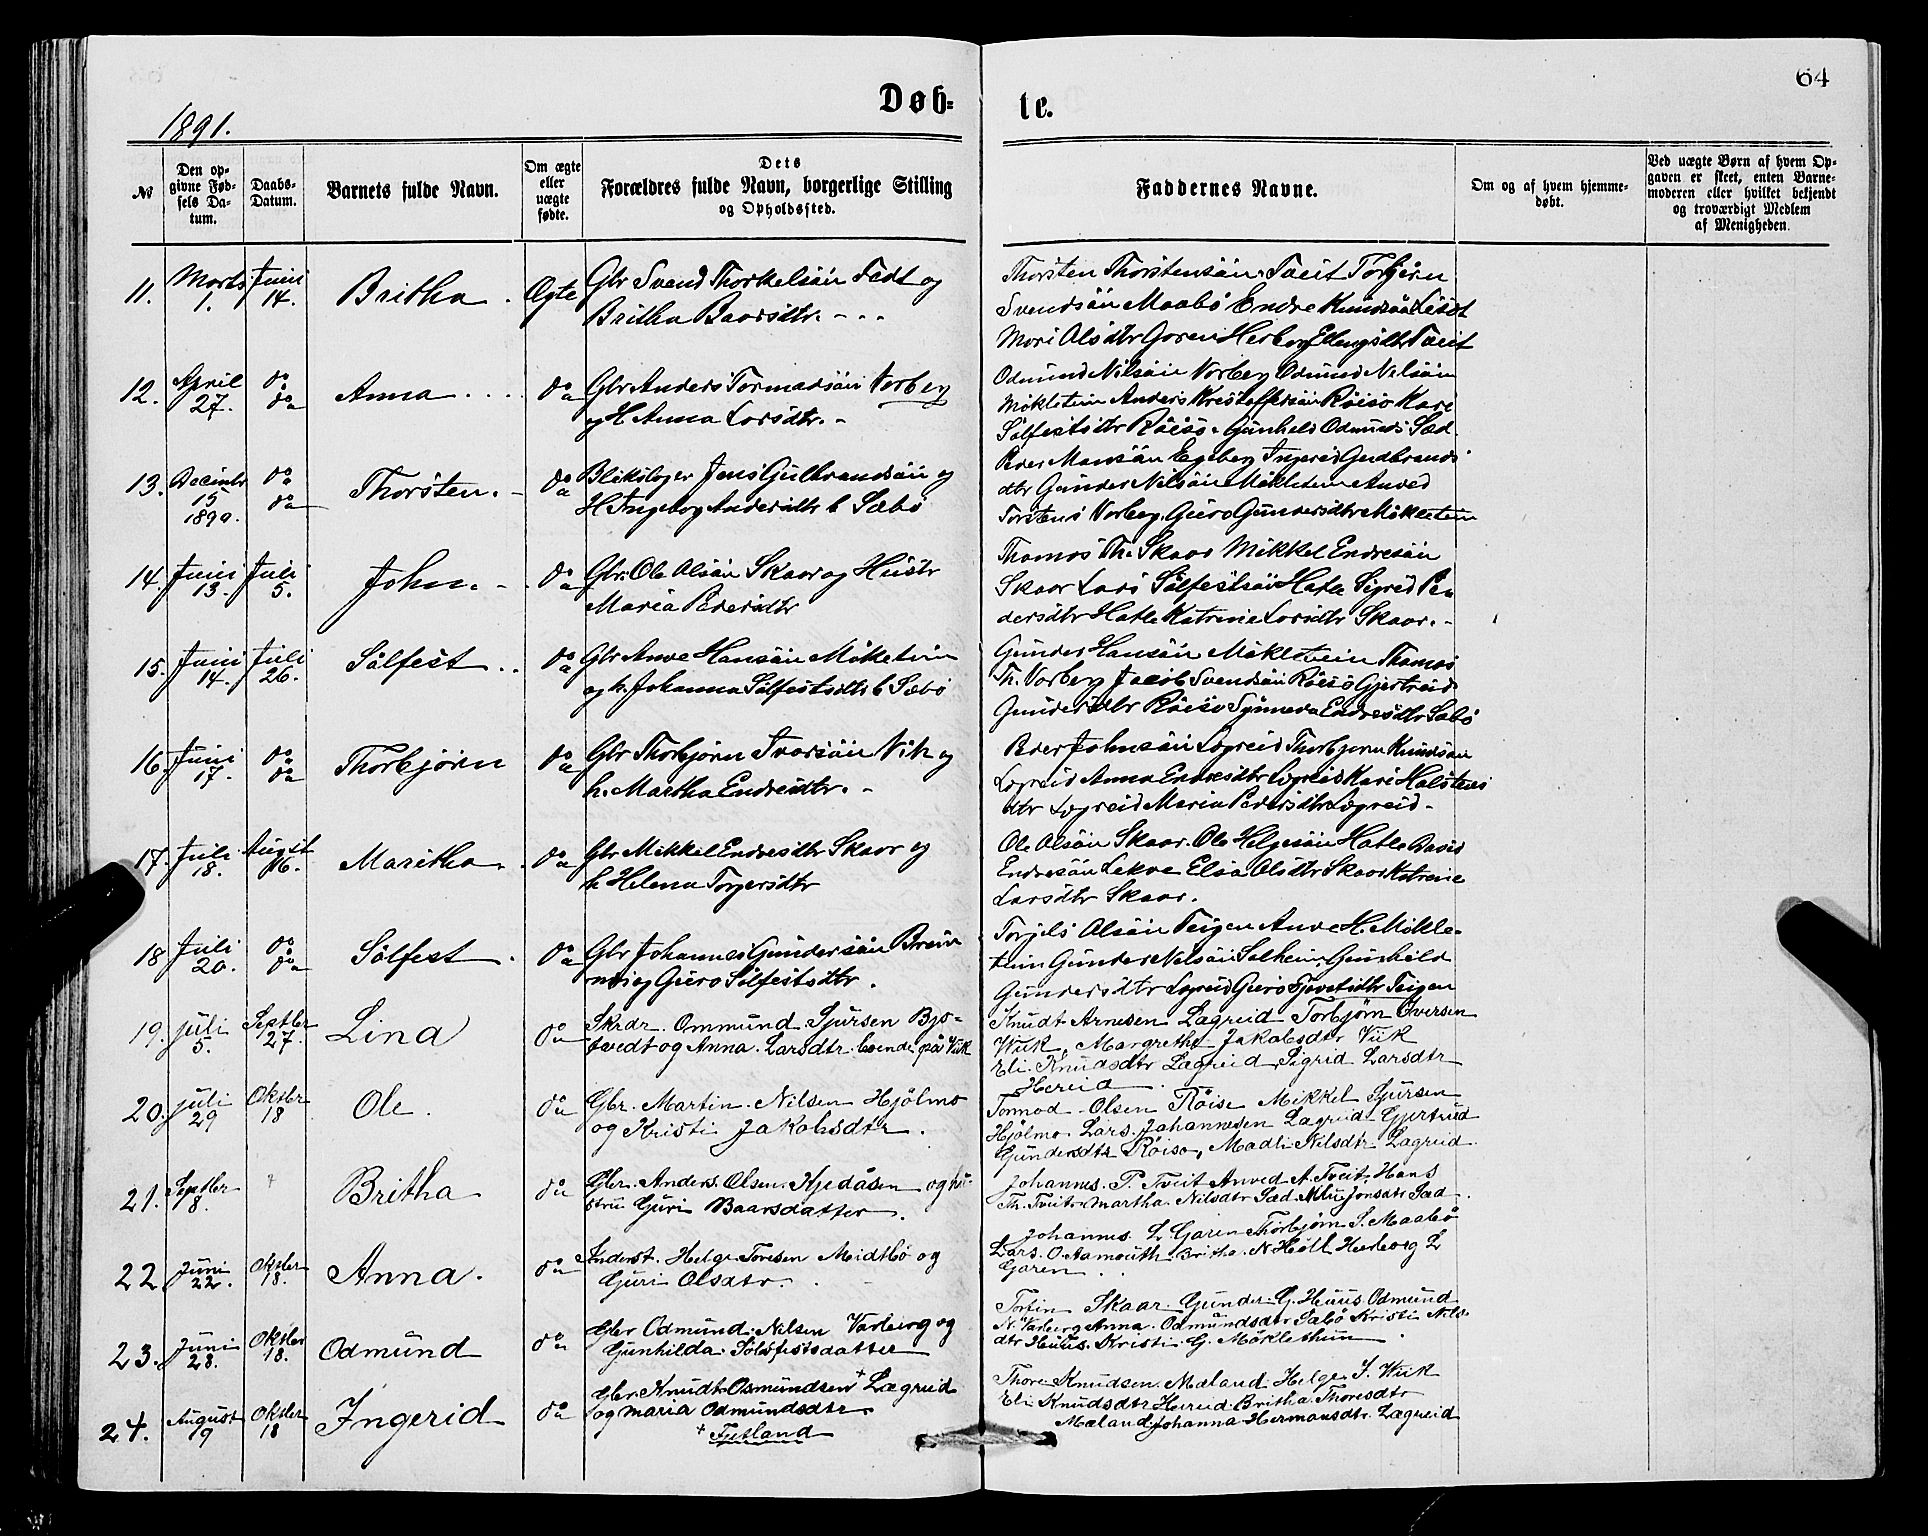 64
Døb- te.
1891.
№
Den op-
givne Fød-
sels Da-
tum.
Daabs-
Datum.
Barnets fulde Navn.
Om ægte
eller
uægte
fødte.
Dets
Forældres fulde Navn, borgerlige Stilling
og Opholdssted.
Faddernes Navne.
Om og af hvem hjemme-
døbt.
Ved uægte Børn af hvem Op-
gaven er skeet, enten Barne-
moderen eller hvilket bekjendt
og troværdigt Medlem
af Menigheden.
11. Marts 1. Juni 14. Britha. Ægte
Gbr Svend Thorkelsön og
Britha Baarsdtr.
Thorsten Thorstensön Tveit Torbjörn
Svendsön Maabö Endre Knudsön
Mari Olsdtr Garen Herborg Ellingsdtr Tveit
12. April 27. do do Anna do
Gbr Anders Tormodsön Vorberg
og H Anna Larsdtr.
Odmund Nilsön Vorberg Odmund Nilsön
Mökletun Anders Röisö Kari
Sölfestsdtr Röisö. Gunhild Odmunds Sæd
13. Decembr 15 1890. do do Thorsten. do
Blikslager Jens Gulbrandsön og
H Ingeborg Andersdtr Sæbö
Peder Monsön Egeberg Ingerid Gudbrands
dtr Gunder Nilsön Mökletun Anved
Torstens Vorberg. Guro Gundersdtr Mökletun
14. Juni 13. Juli 5. John. do
Gbr: Ole Olsön Skaar og Hustr
Maria Pedersdtr
Thomas Th. Skaar Mikkel Endresön
Skaar Lars Sölfestsön Hatle Sigrid Pe
dersdtr Hatle Katrine Larsdtr Skaar.
15. Juni 14. Juli 26. Sölfest do
Gbr Anve Hansön Mökletun
og h. Johanna Sölfestsdtr Sæbö
Gunder Hansön Mökletun Thomas
Th. Vorberg Jacob Svendsön Röisö Gjertrud
Gundersdtr Röisö Synneva Endresdtr Sæbö
16. Juni 17. do do Thorbjörn do
Gbr Thorbjörn Ivarsön Vik og
h. Martha Endresdtr.
Peder Johnsön Lægreid Thorbjörn Knudsön
Lægreid Anna Endresdtr Lægreid Kari Halstens
dtr Lægreid Maria Pedersdtr Lægreid
17. Juli 18. August 16. Maritha do
Gbr Mikkel Endresdtr Skaar og
h Helena Torgersdtr
Ole Olsön Skaar. Ole Helgesön Hatle David
Endresön Lekve Elsa Olsdtr Skaar Katrine
Larsdtr Skaar.
18 Juli 20. do do Sölfest do
Gbr Johannes Gundersön
og Guro Sölfestsdtr.
Torjils Olsön Teigen Anve H. Mökle-
tun Gunder Nilsön Solheim, Gunhild
Gundersdtr Lægreid Guro Teigen
19. juli 5. Septbr 27. Lina do
Ommund Sjursen Bjo-
tvedt og Anna Larsdtr. boende på Viik
Knudt Arnesen Lægreid Torbjørn Iversen
Viik, Margrethe Jakobsdtr Viik
Eli Knudsdtr Lægreid Sigrid Larsdtr
Hereid
20. juli 29 Oktbr 18 Ole. do
Gbr. Martin Nilsen Hjölmo
og Kristi Jakobsdtr.
Tormod Olsen Röise Mikkel Sjursen
Hjölmo Lars Johannesen Lægreid Gjertrud
Gundersdtr Röiso, Madli Nilsdtr Lægreid
21. Septbr 8. Britha do
Gbr. Anders Olsen Kjedåsen og hu-
stru Guri Baarsdatter.
Johannes P. Tveit Anved A. Tveit, Hans
Th. Tveit Martha Nilsdtr Sæd Jonsdtr Sæd.
22. Juni 22. Oktbr 18. Anna. do
Inderst. Helge Toresen Meidtbö og
Guri Olsdtr.
Johannes L Garen Thorbjørn S. Maabö
Lars O. Aamouth Britha N. Höll Herborg L
Garen
23. Juni 28. Oktbr 18. Odmund do
Gbr Odmund Nilsen Varberg og
Gunhilda Sölvfestsdatter
Torfin Skaar. Gunder G. Huus Odmund
N. Varberg Anna Odmundsdtr Sabö Kristi Nils-
dtr Huus. Kristi G. Mökletun.
24. August 19 Oktbr 18 Ingerid do
Gbr. Knudt Osmundsen + Lægreid
og Maria Odmundsdtr
+ Fjetland
Thore Knudsen Mæland Helge I. Wiik
Eli Knudsdtr Hereid. Britha Thoresdtr
Mæland Johanna Hermansdtr. Lægreid